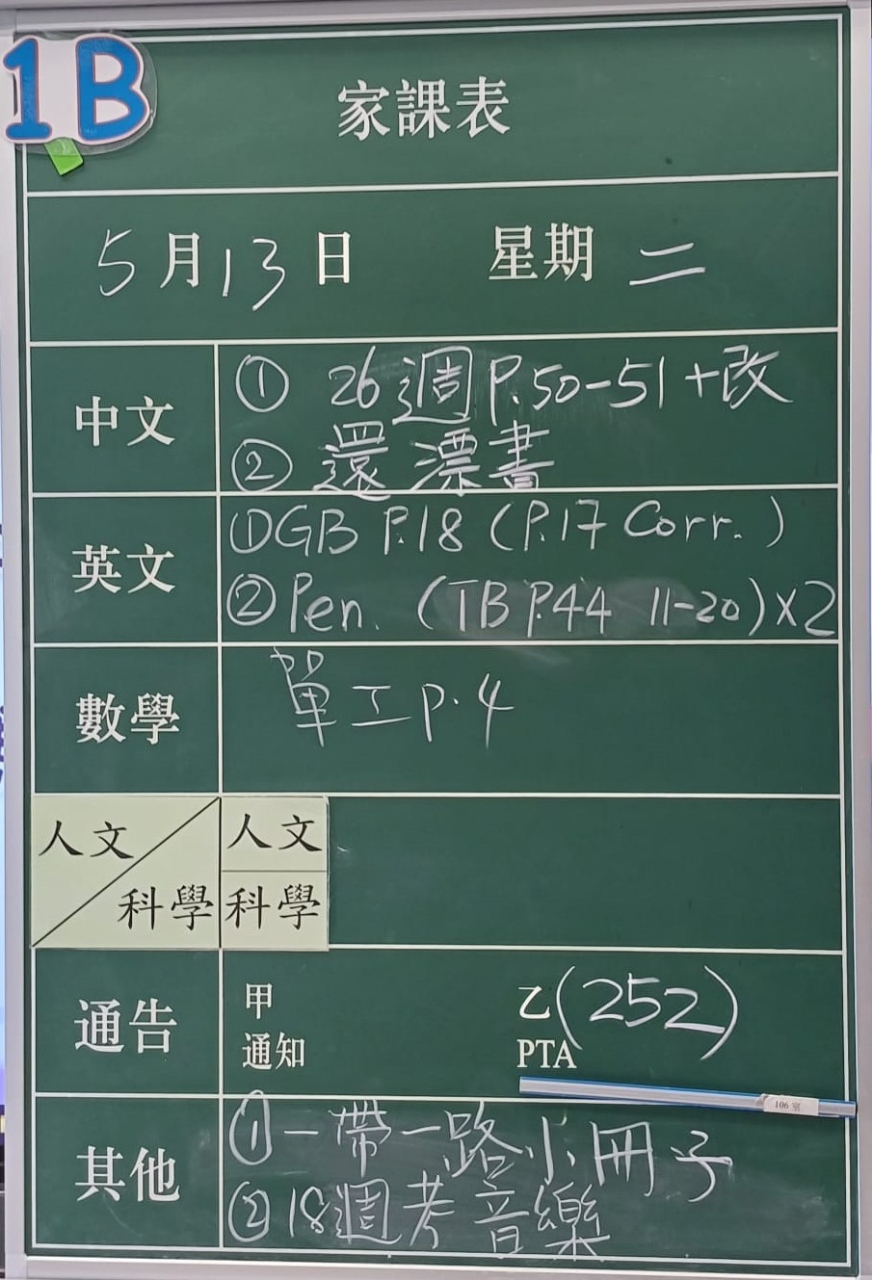 1B
家課表
5月13日 星期二
中文
① 26週 P.50-51+改
② 還漂書
英文
① GB P.18 (P.17 Corr.)
② Pen. (TB P.44 11-20)×2
數學
單工 P.4
人文
科學
人文
科學
通告
甲
通知
乙(252)
PTA
106室
其他
① 一帶一路小冊子
② 18週考音樂